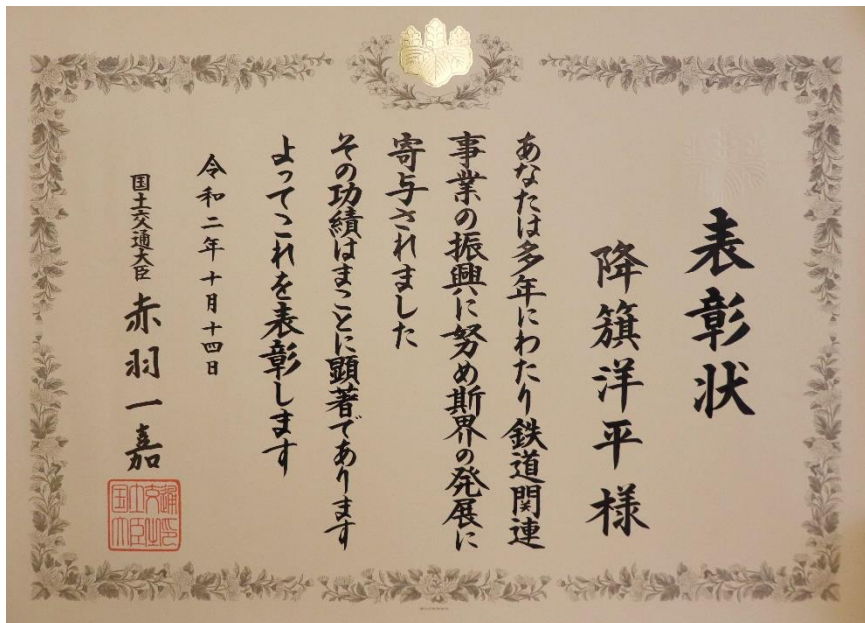 表彰状
降籏洋平様
あなたは多年にわたり鉄道関連
事業の振興に努め斯界の発展に
寄与されました
その功績はまことに顕著であります
よってこれを表彰します
令和二年十月十四日
国土交通大臣 赤羽一嘉
国土交通大臣之印